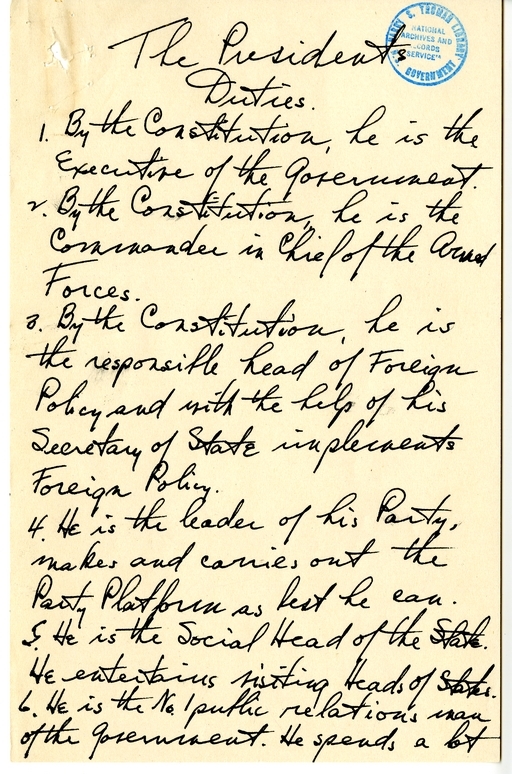 The Presidents
Duties.
1. By the Constitution, he is the
Executive of the Government.
2. By the Constitution, he is the
Commander in Chief of the Armed
Forces.
3. By the Constitution, he is
the responsible head of Foreign
Policy and with the help of his
Secretary of State implements
Foreign Policy.
4. He is the leader of his Party,
makes and carries out the
Party Platform as best he can.
5. He is the Social Head of the State.
He entertains visiting Heads of State.
6. He is the No. 1 public relations man
of the Government. He spends a lot
HARRY S. TRUMAN LIBRARY
NATIONAL
ARCHIVES AND
RECORDS
SERVICE
U.S. GOVERNMENT